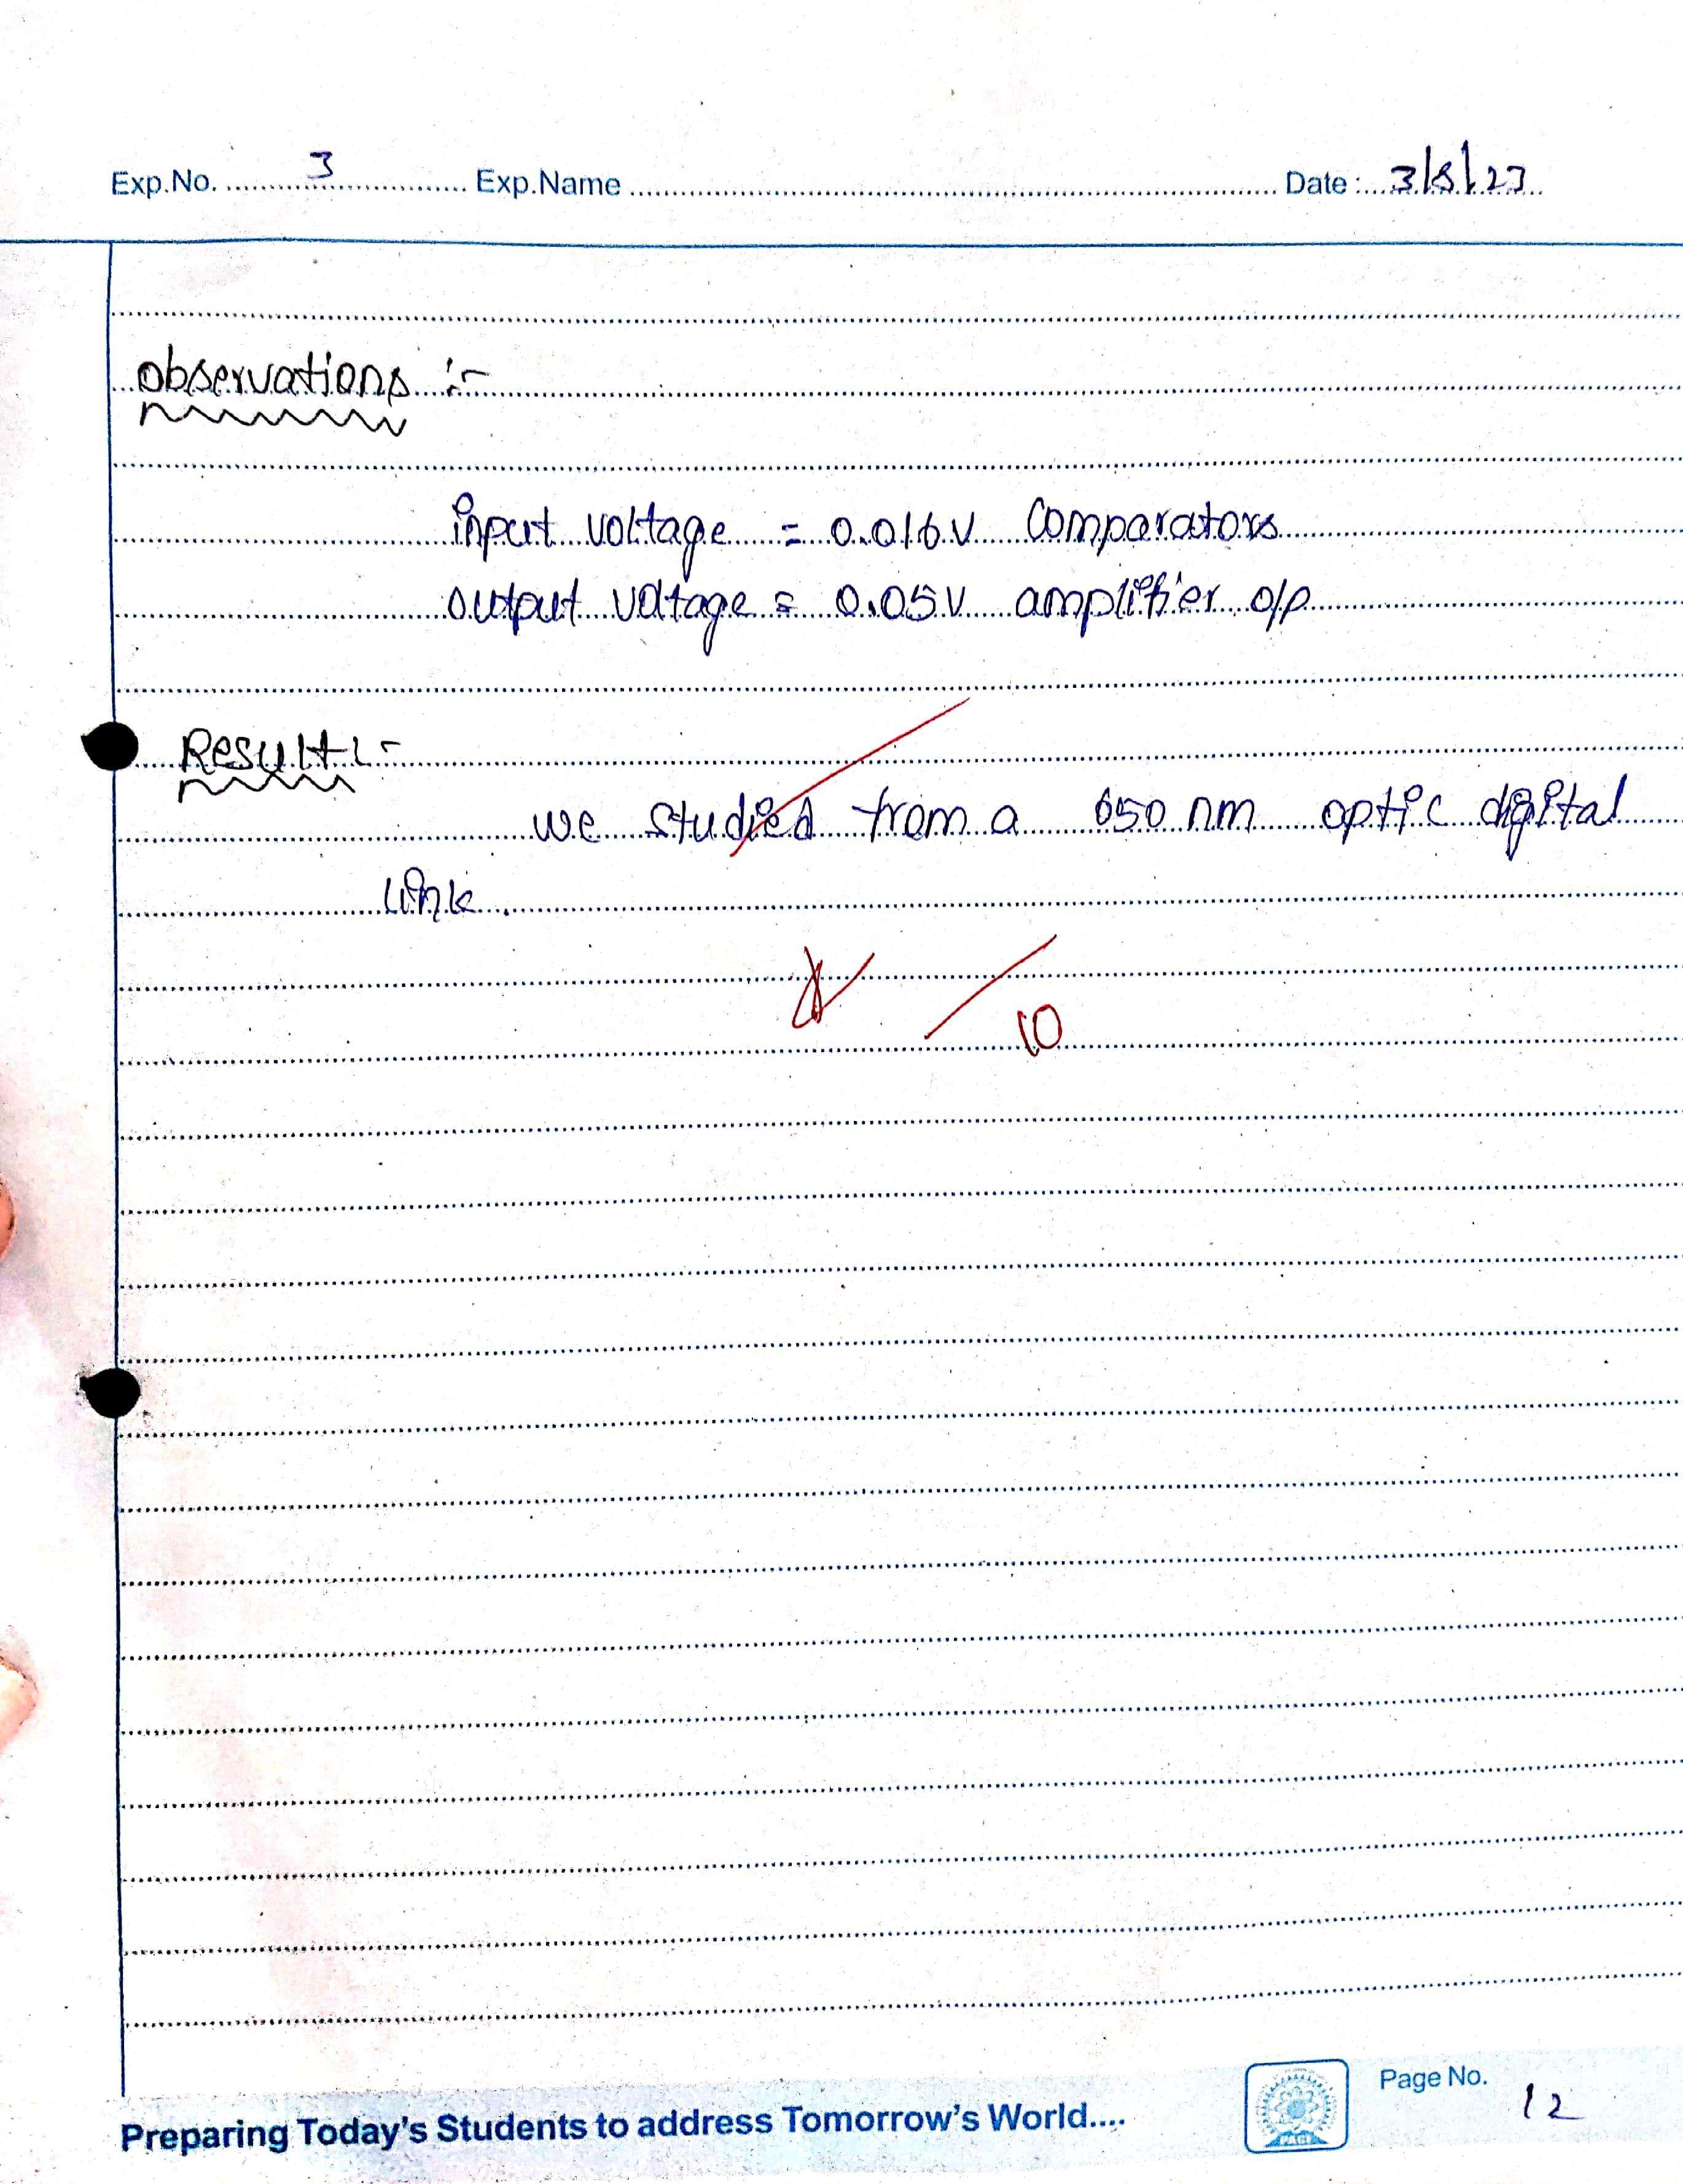 Exp.No. 3 Exp.Name Date: 3/8/23
observations :-
input voltage = 0.016V Comparators
output voltage = 0.05V amplifier o/p
Result :-
we studied from a 650 nm optic digital
link.
10
Preparing Today's Students to address Tomorrow's World....
PACE
Page No. 12